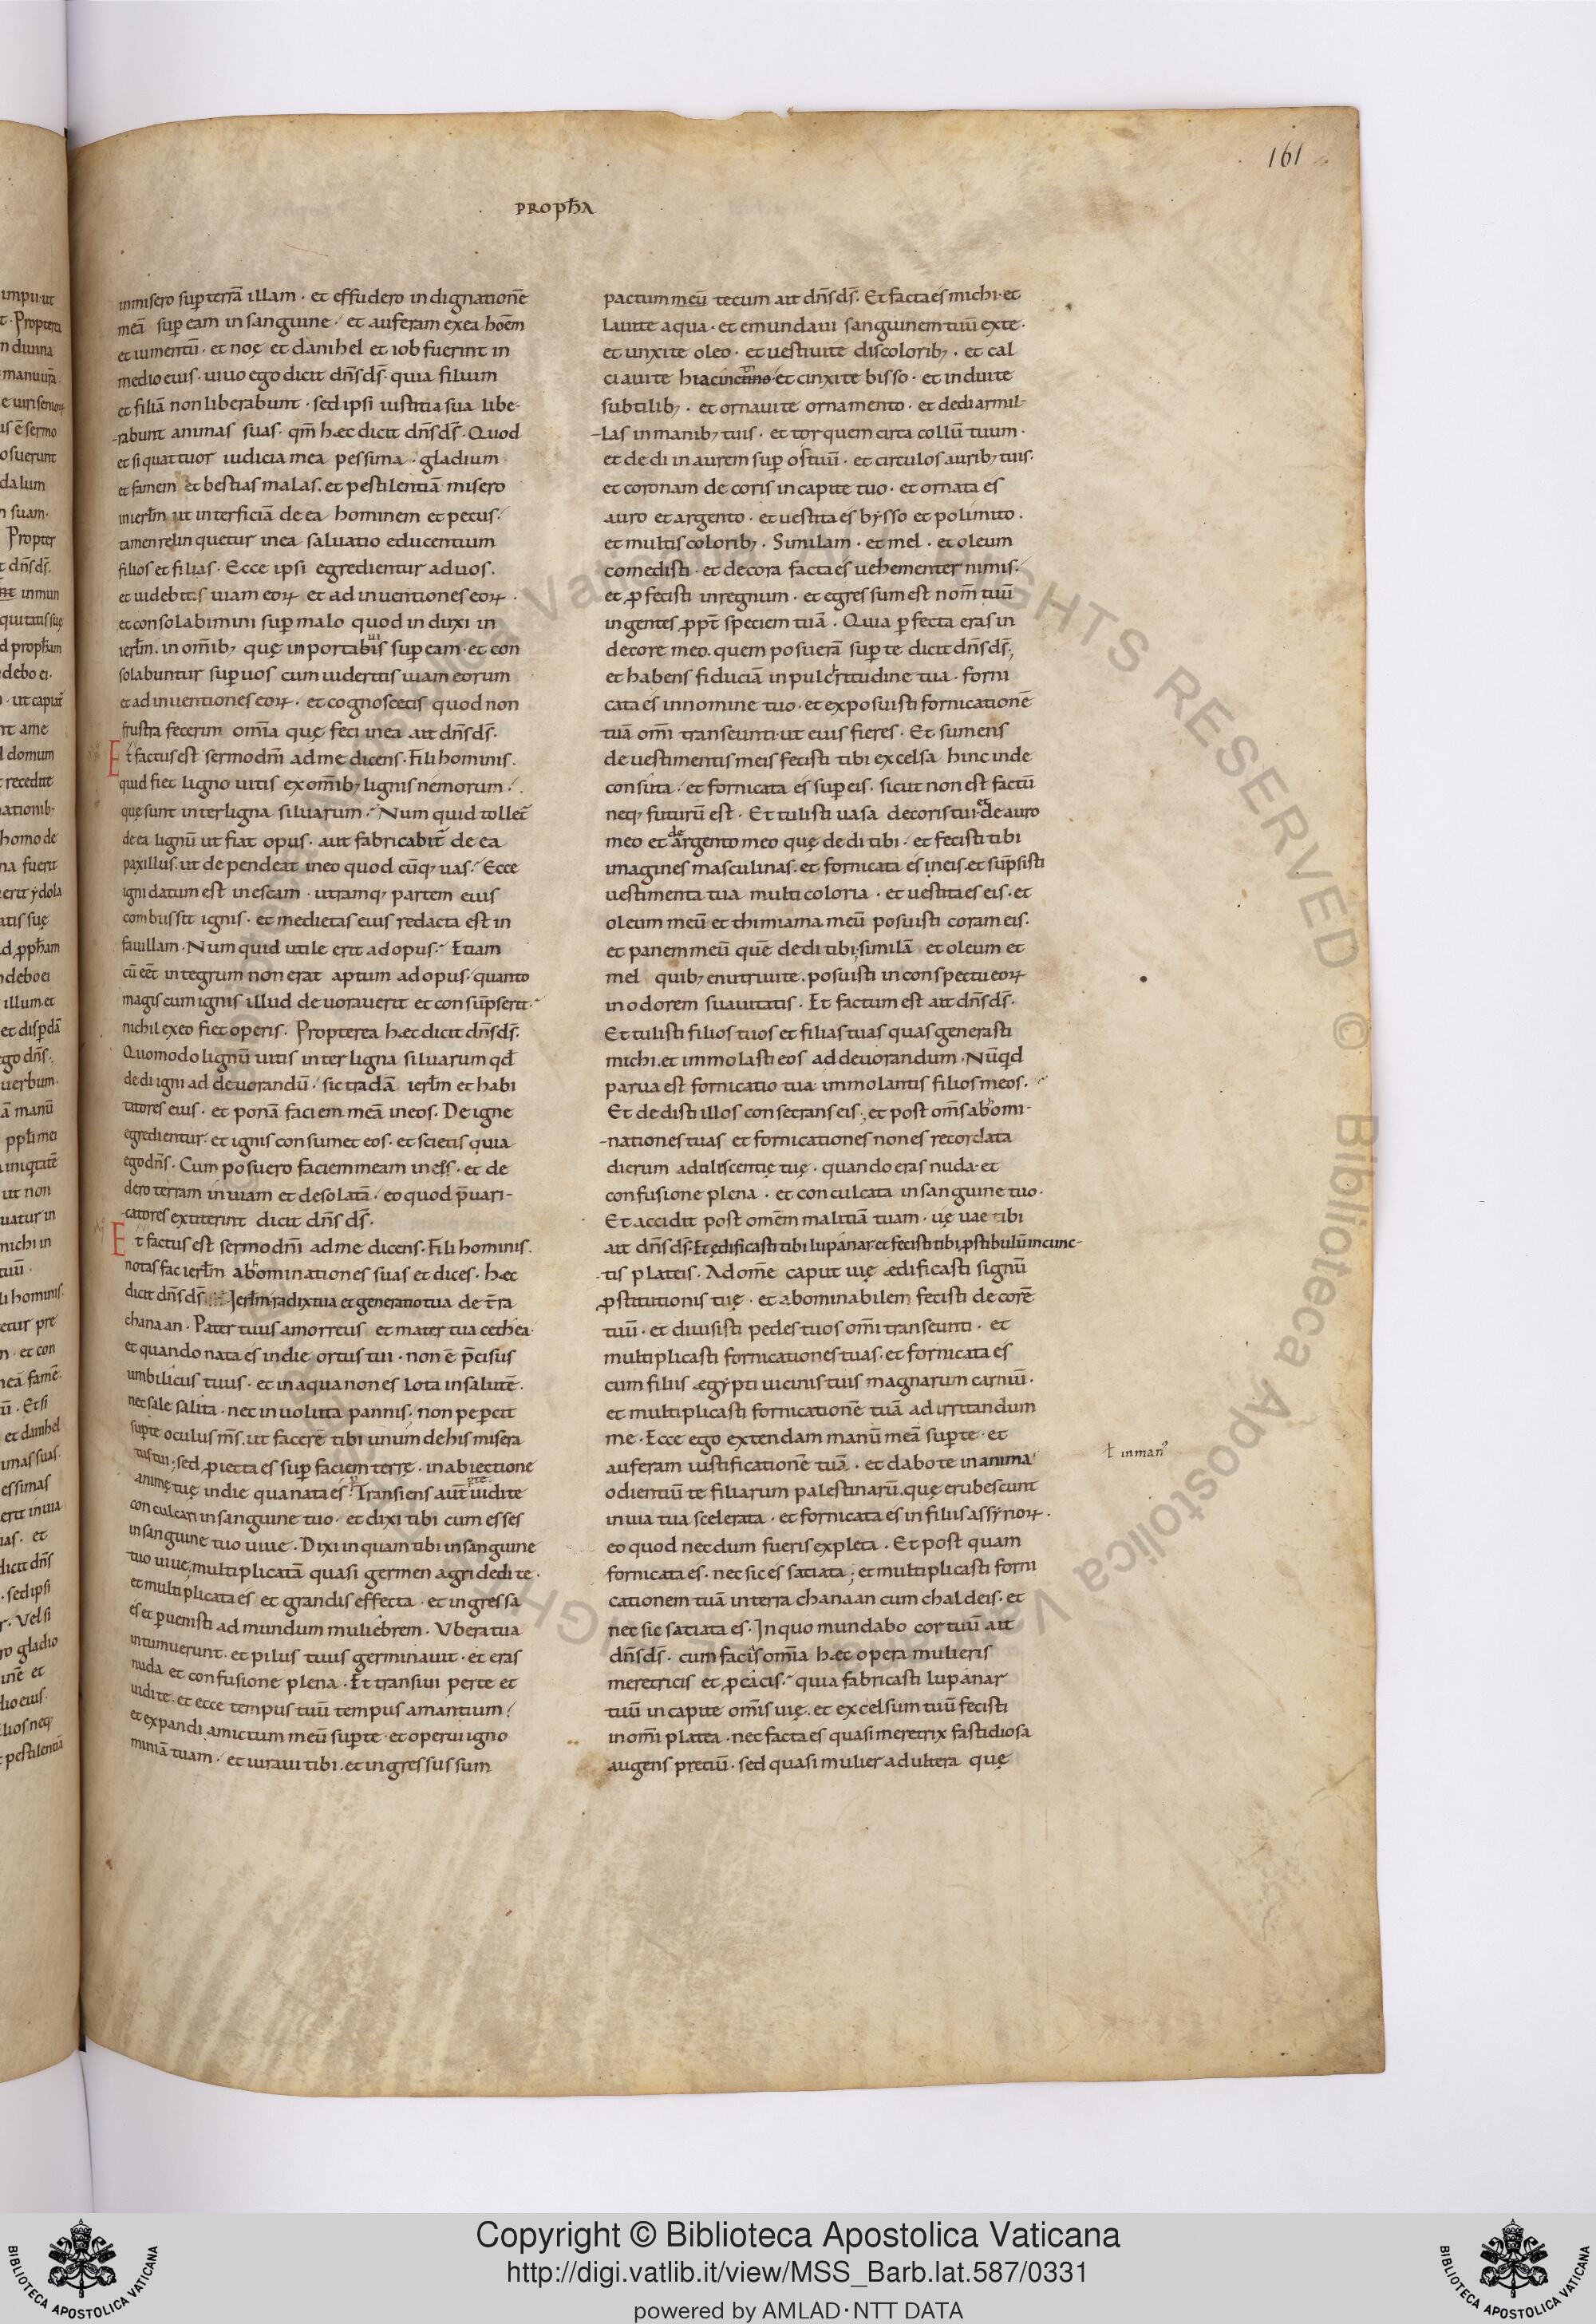 161
PROPħA
inmisero sup terrā illam · et effudero indignationē
meā sup eam in sanguine · et auferam ex ea hoēm
et iumentū · et noę et danihel et iob fuerint in
medio eius · uiuo ego dicit dn̄s ds̄ · quia filium
et filiā non liberabunt · sed ipsi iustitia sua libe-
-rabunt animas suas · qm̄ hæc dicit dn̄s ds̄ · Quod
et si quattuor iudicia mea pessima · gladium
et famem et bestias malas · et pestilentiā misero
in ierłm ut interficiā de ea hominem et pecus ·
tamen relinquetur in ea saluatio educentium
filios et filias · Ecce ipsi egredientur ad uos ·
et uidebitis uiam eoꝝ et adinuentiones eoꝝ ·
et consolabimini sup malo quod induxi in
ierłm · in om̄ib; quę inportabis sup eam · et con
solabuntur sup uos cum uideritis uiam eorum
et adinuentiones eoꝝ · et cognoscetis quod non
frustra fecerim om̄ia quę feci in ea ait dn̄s ds̄ ·
Et factus est sermo dn̄i ad me dicens · Fili hominis ·
quid fiet ligno uitis ex om̄ib; lignis nemorum ·
quę sunt inter ligna siluarum · Num quid tollet̄
de ea lignū ut fiat opus · aut fabricabit̄ de ea
paxillus · ut dependeat in eo quod cūq; uas · Ecce
igni datum est in escam · utramq; partem eius
combussit ignis · et medietas eius redacta est in
fauillam · Num quid utile erit ad opus · Etiam
cū eēt integrum non erat aptum ad opus · quanto
magis cum ignis illud deuorauerit et consūpserit ·
nichil ex eo fiet operis · Propterea hæc dicit dn̄s ds̄ ·
Quomodo lignū uitis inter ligna siluarum qđ
dedi igni ad deuorandū · sic tradā ierłm et habi
tatores eius · et ponā faciem meā in eos · De igne
egredientur · et ignis consumet eos · et scietis quia
ego dn̄s · Cum posuero faciem meam in eis · et de
dero terram inuiam et desolatā · eo quod p̄uari-
-catores extiterint dicit dn̄s ds̄ ·
Et factus est sermo dn̄i ad me dicens · Fili hominis ·
notas fac ierłm abominationes suas et dices · hæc
dicit dn̄s ds̄ Ierłm · radix tua et generatio tua de t̄ra
chanaan · Pater tuus amorreus et mater tua cethea ·
et quando nata es in die ortus tui · non ē p̄cisus
umbilicus tuus · et in aqua non es lota in salutē ·
nec sale salita · nec inuoluta pannis · non pepercit
sup te oculus m̄s · ut facerē tibi unum de his misera
tus tui ; sed ꝓiecta es sup faciem terrę · in abiectione
animę tuę in die qua nata es · Transiens aut̄ p te uidi te
conculcari in sanguine tuo · et dixi tibi cum esses
in sanguine tuo uiue · Dixi inquam tibi in sanguine
tuo uiue ; multiplicatā quasi germen agri dedi te ·
et multiplicata es et grandis effecta · et ingressa
es et peruenisti ad mundum muliebrem · Vbera tua
intumuerunt · et pilus tuus germinauit · et eras
nuda et confusione plena · Et transiui per te et
uidi te · et ecce tempus tuū tempus amantium ·
et expandi amictum meū sup te · et operui igno
miniā tuam · et iuraui tibi · et ingressus sum
pactum meū tecum ait dn̄s ds̄ · Et facta es michi · et
laui te aqua · et emundaui sanguinem tuū ex te ·
et unxi te oleo · et uestiui te discolorib; · et cal
ciaui te hiacinctino · et cinxi te bisso · et indui te
subtilib; · et ornaui te ornamento · et dedi armil-
-las in manib; tuis · et torquem circa collū tuum ·
et dedi inaurem sup os tuū · et circulos aurib; tuis ·
et coronam decoris in capite tuo · et ornata es
auro et argento · et uestita es bysso et polimito ·
et multis colorib; · Similam · et mel · et oleum
comedisti · et decora facta es uehementer nimis ·
et ꝓfecisti in regnum · et egressum est nom̄ tuū
in gentes ꝓpt̄ speciem tuā · Quia perfecta eras in
decore meo · quem posuerā sup te dicit dn̄s ds̄ ;
et habens fiduciā in pulcritudine tua · forni
cata es in nomine tuo · et exposuisti fornicationē
tuā om̄i transeunti · ut eius fieres · Et sumens
de uestimentis meis fecisti tibi excelsa hinc inde
consuta · et fornicata es sup eis · sicut non est factū
neq; futurū est · Et tulisti uasa decoris tui · de auro
meo et de argento meo quę dedi tibi · et fecisti tibi
imagines masculinas · et fornicata es in eis · et sūpsisti
uestimenta tua multicoloria · et uestita es eis · et
oleum meū et thimiama meū posuisti coram eis ·
et panem meū quē dedi tibi · similā et oleum et
mel quib; enutriui te · posuisti in conspectu eoꝝ
in odorem suauitatis · Et factum est ait dn̄s ds̄ ·
Et tulisti filios tuos et filias tuas quas generasti
michi · et immolasti eos ad deuorandum · Nūqđ
parua est fornicatio tua immolantis filios meos ·
Et dedisti illos consecrans eis · et post om̄s abomi-
-nationes tuas et fornicationes non es recordata
dierum adulescentię tuę · quando eras nuda · et
confusione plena · et conculcata in sanguine tuo ·
Et accidit post omēm malitiā tuam · uę uae tibi
ait dn̄s ds̄ · Et ędificasti tibi lupanar · et fecisti tibi ꝓstibulū in cunc-
-tis plateis · Ad om̄e caput uię ædificasti signū
ꝓstitutionis tuę · et abominabilem fecisti decorē
tuū · et diuisisti pedes tuos om̄i transeunti · et
multiplicasti fornicationes tuas · et fornicata es
cum filiis ægypti uicinis tuis magnarum carniū ·
et multiplicasti fornicationē tuā ad irritandum
me · Ecce ego extendam manū meā sup te · et
auferam iustificationē tuā · et dabo te in anima
ł in man
odientiū te filiarum palestinarū · quę erubescunt
in uia tua scelerata · et fornicata es in filiis assyrioꝝ ·
eo quod necdum fueris expleta · Et post quam
fornicata es · nec sic es satiata ; et multiplicasti forni
cationem tuā in terra chanaan cum chaldeis · et
nec sic satiata es · In quo mundabo cor tuū ait
dn̄s ds̄ · cum facis om̄ia hæc opera mulieris
meretricis et ꝓcacis · quia fabricasti lupanar
tuū in capite om̄is uię · et excelsum tuū fecisti
in om̄i platea · nec facta es quasi meretrix fastidiosa
augens pretiū · sed quasi mulier adultera quę
Copyright © Biblioteca Apostolica Vaticana
http://digi.vatlib.it/view/MSS_Barb.lat.587/0331
powered by AMLAD·NTT DATA